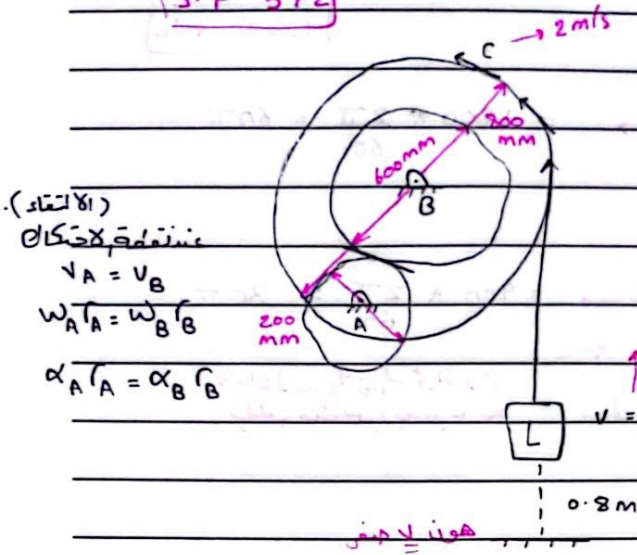 C → 2 m/s
800 mm
600mm
B
(الالتقاء).
عند نقطة الاحتكاك
V_A = V_B
ω_A r_A = ω_B r_B
A
200 mm
α_A r_A = α_B r_B
L
V =
0.8 m
هون V صفر